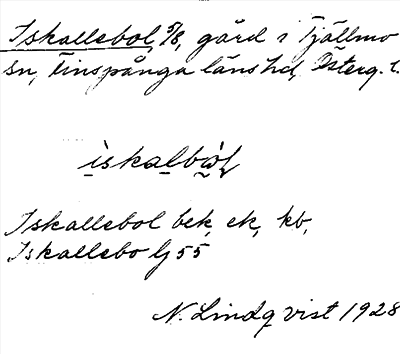 Iskallebol, 5/8, gård i Tjällmo
sn, Finspånga läns hd, Österg. l.
ìskalbòl
Iskallebol bek, ek, kb,
Iskallebo Lj 55
N. Lindqvist 1928